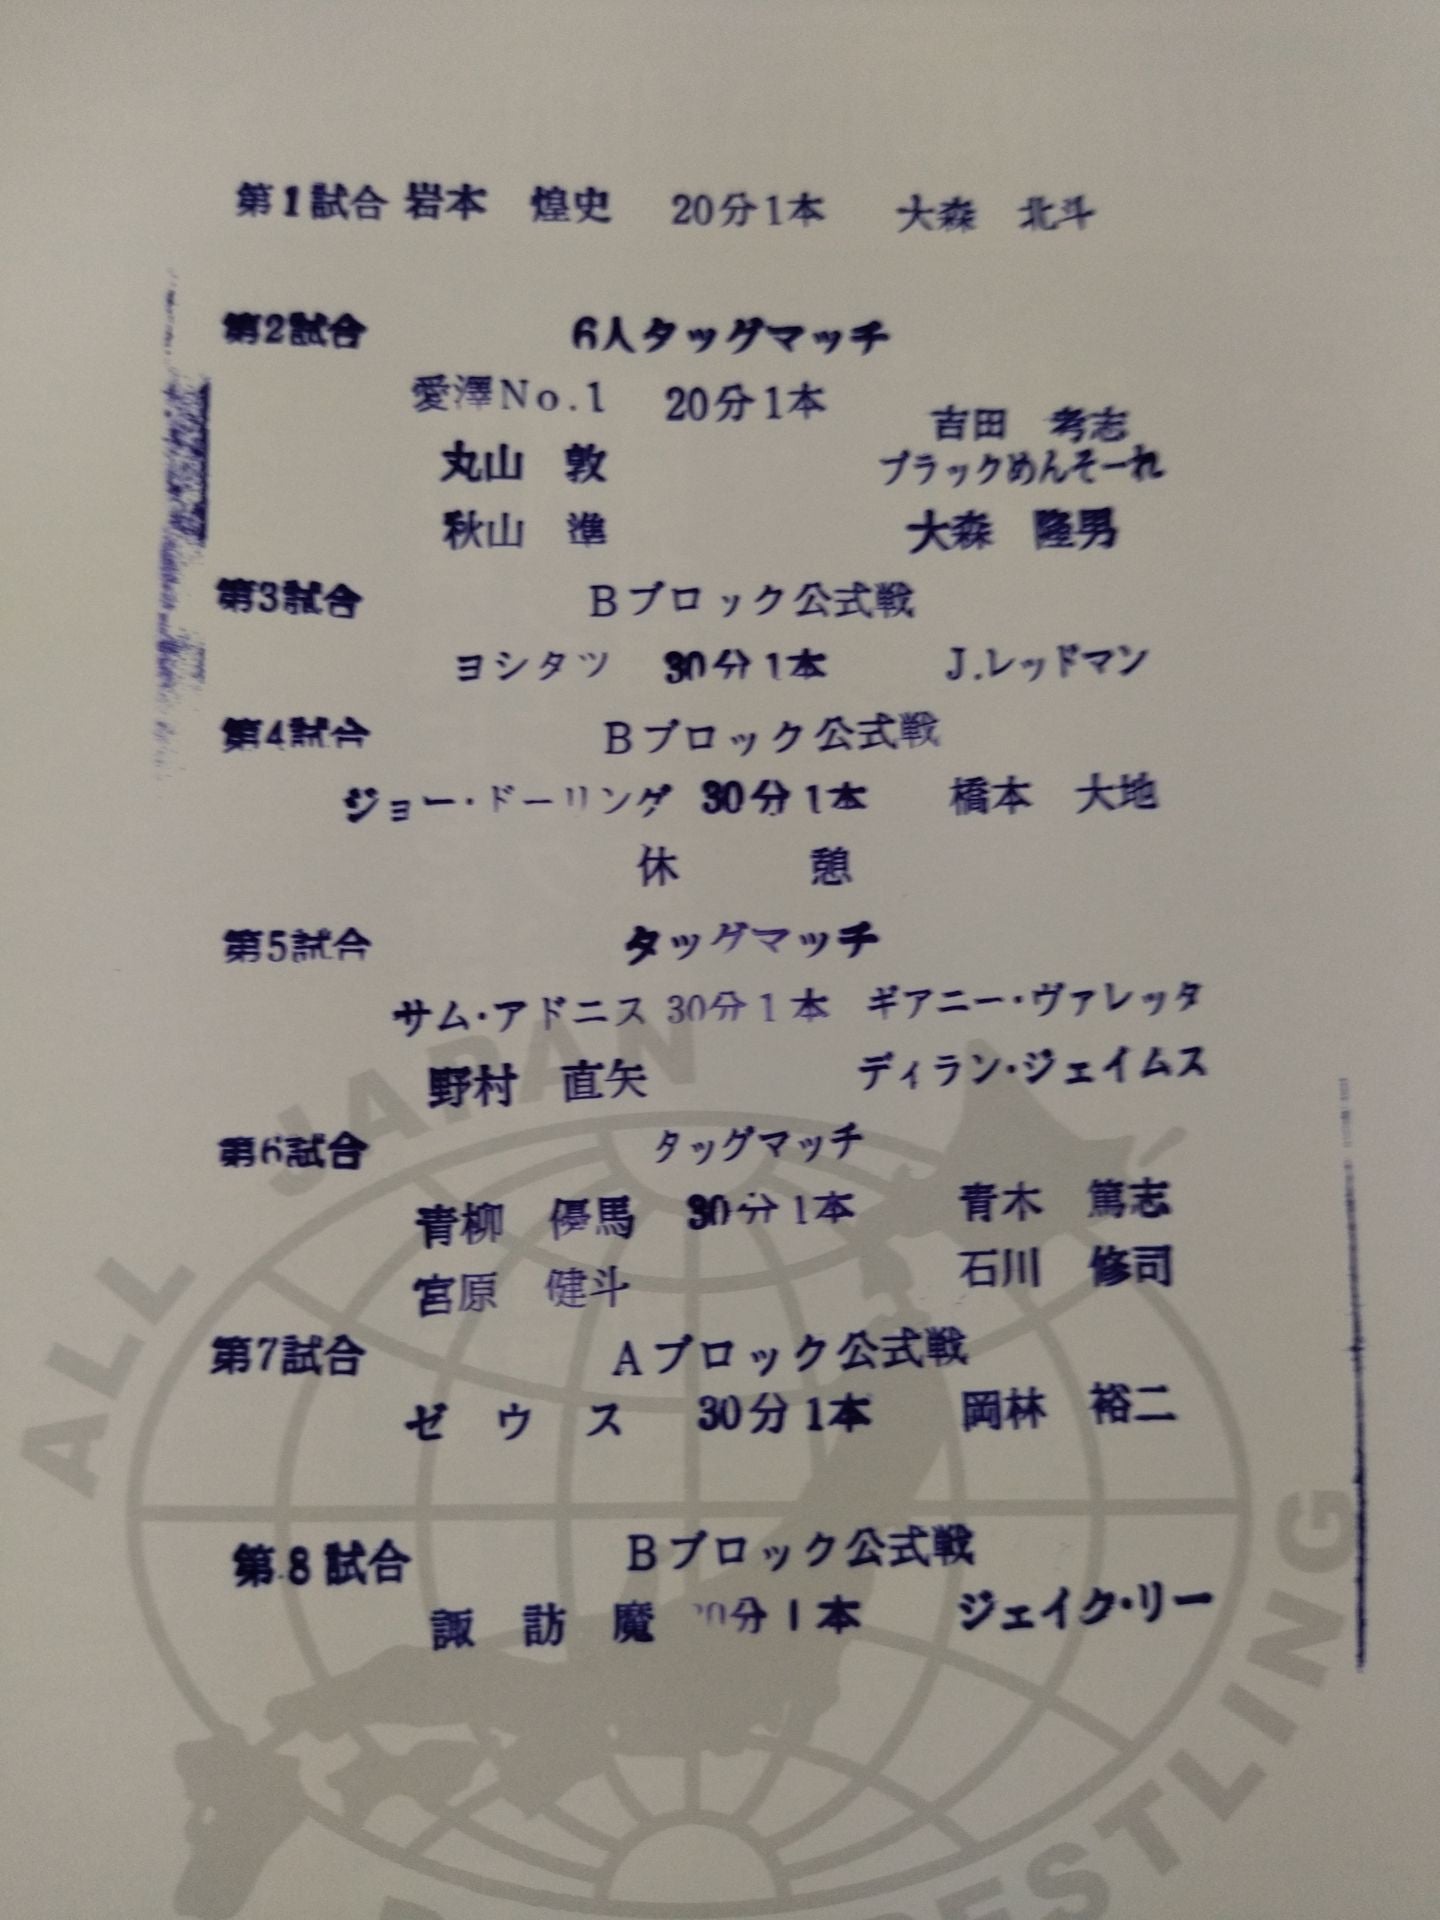 第1試合 岩本 煌史 20分1本 大森 北斗
第2試合 6人タッグマッチ
愛澤No.1 20分1本 吉田 考志
丸山 敦 ブラックめんそーれ
秋山 準 大森 隆男
第3試合 Bブロック公式戦
ヨシタツ 30分1本 J.レッドマン
第4試合 Bブロック公式戦
ジョー・ドーリング 30分1本 橋本 大地
休 憩
第5試合 タッグマッチ
サム・アドニス 30分1本 ギアニー・ヴァレッタ
野村 直矢 ディラン・ジェイムス
第6試合 タッグマッチ
青柳 優馬 30分1本 青木 篤志
宮原 健斗 石川 修司
第7試合 Aブロック公式戦
ゼウス 30分1本 岡林 裕二
第8試合 Bブロック公式戦
諏訪魔 分1本 ジェイク・リー
ALL JAPAN